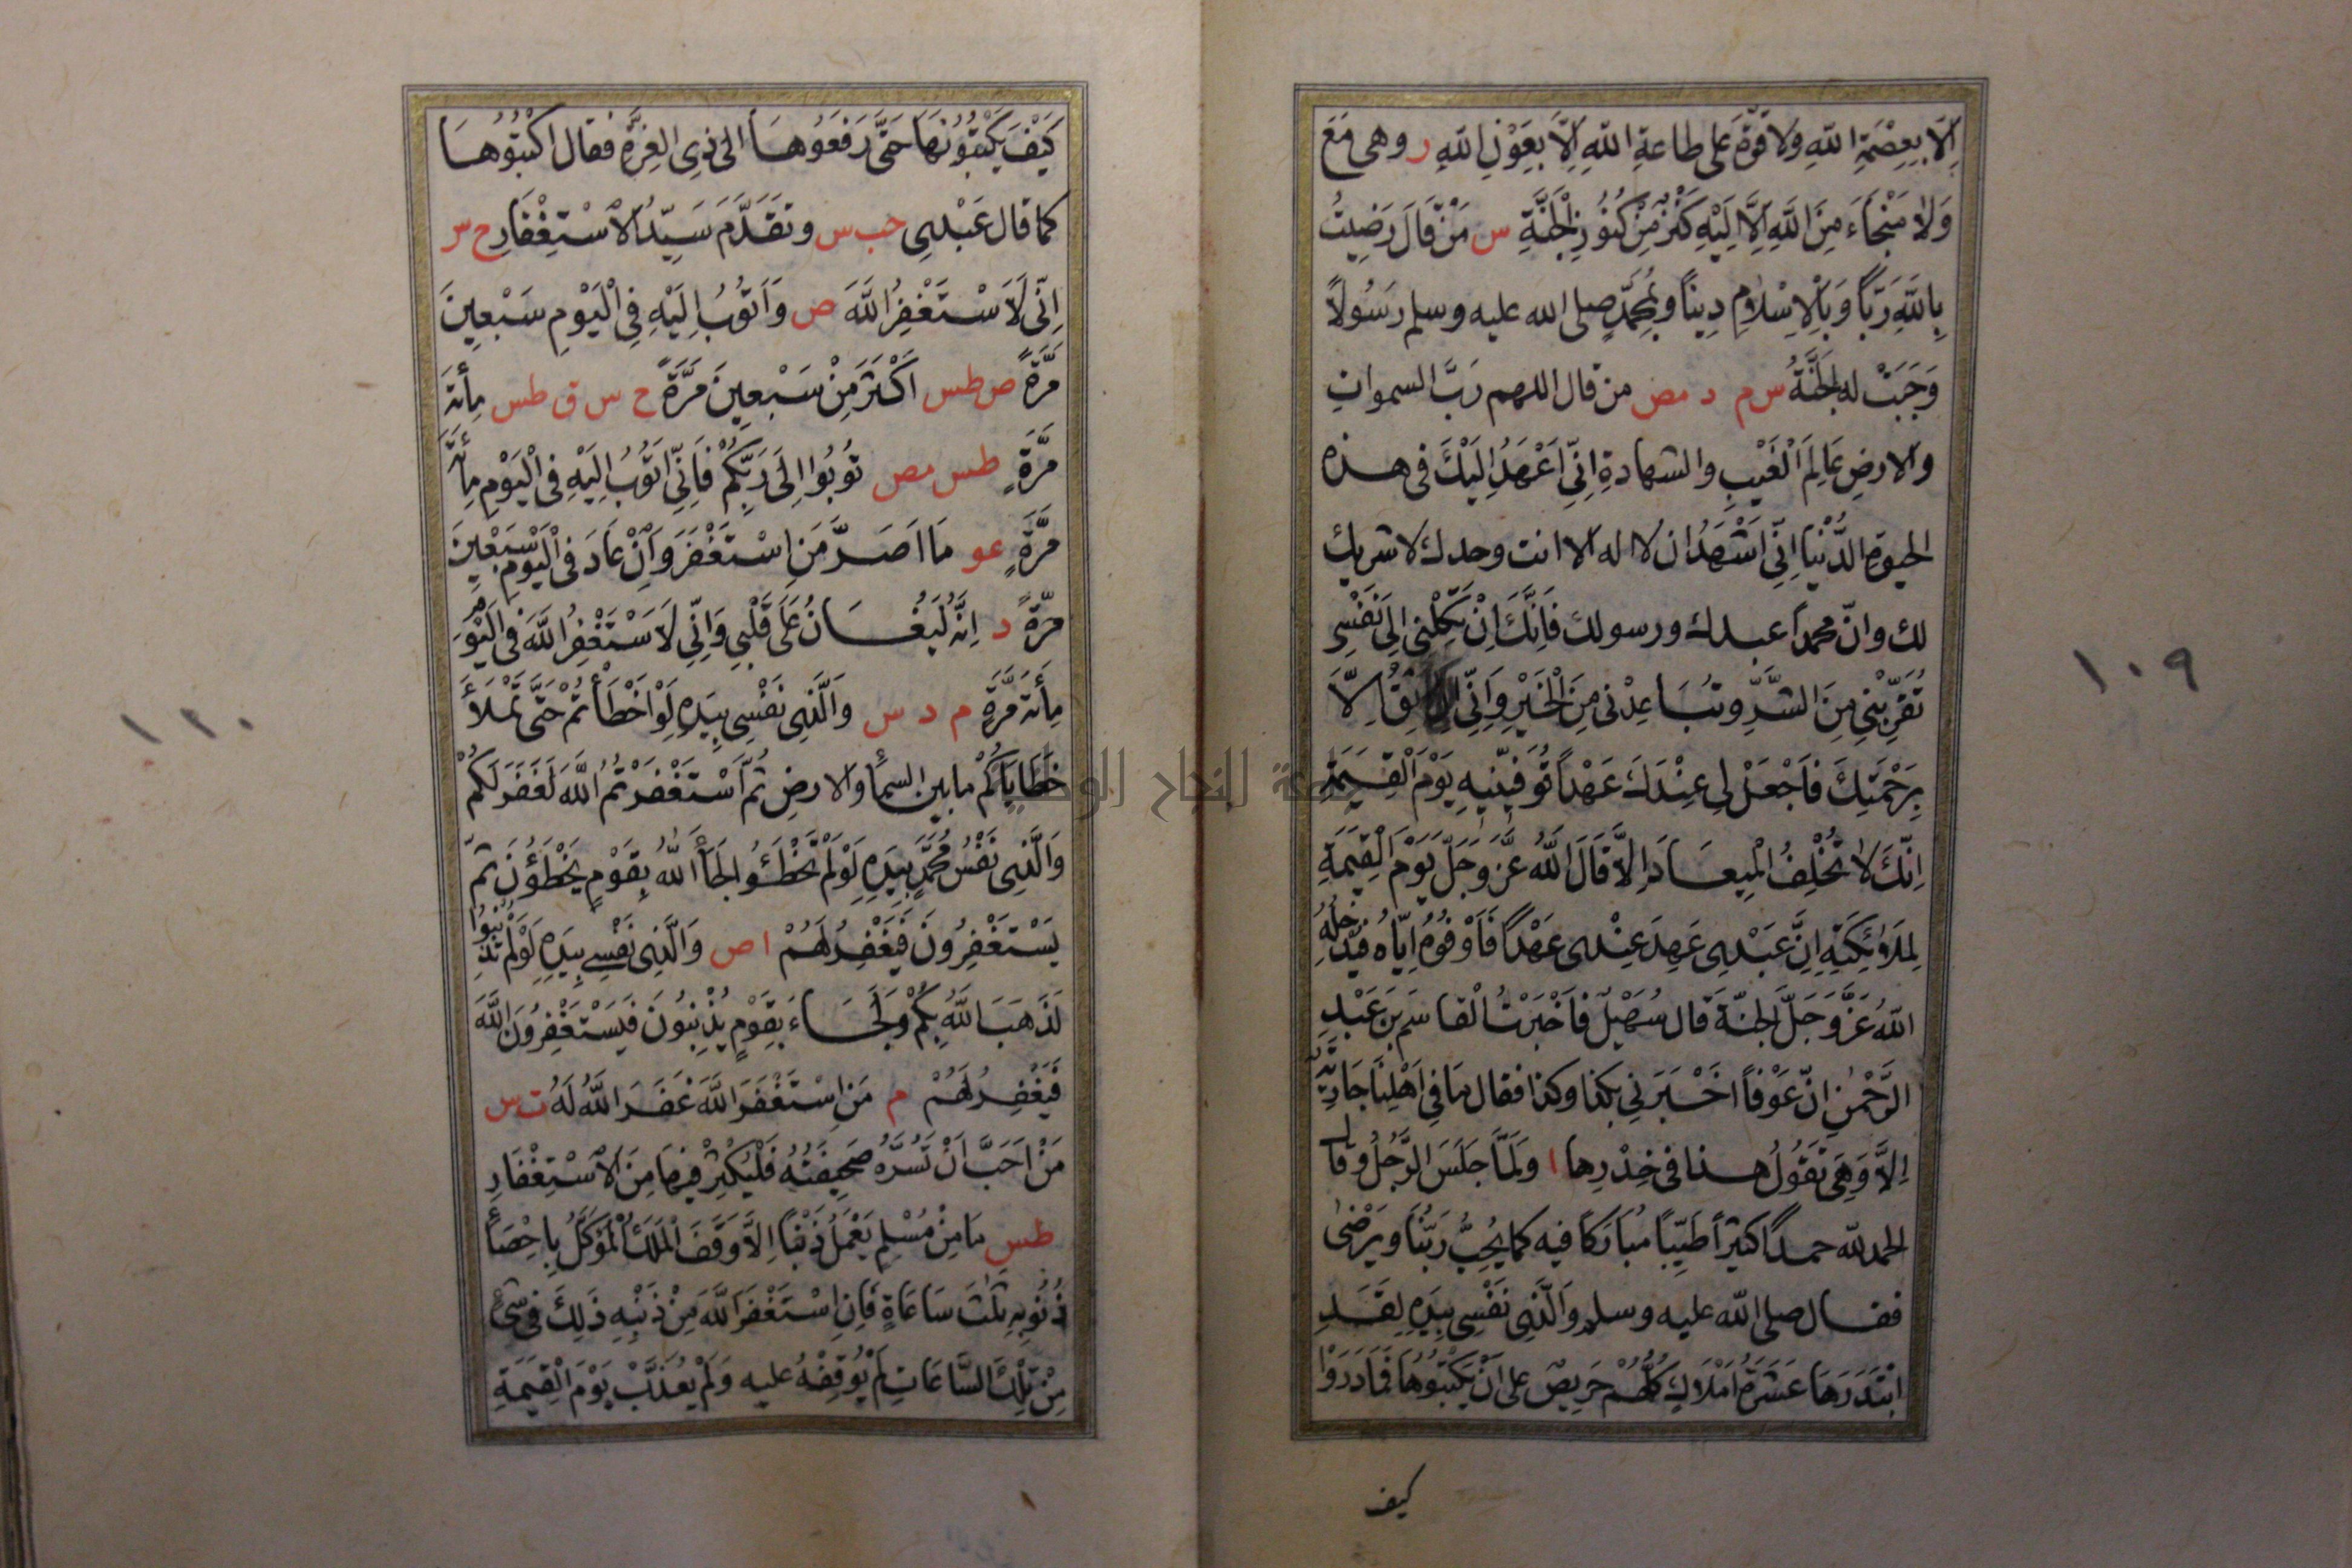 اِلَّا بِعِصْمَةِ اللّٰهِ وَلَا قُوَّةَ عَلٰى طَاعَةِ اللّٰهِ اِلَّا بِعَوْنِ اللّٰهِ ر وهى مَعَ
وَلَا مَنْجَاءَ مِنَ اللّٰهِ اِلَّا اِلَيْهِ كَنْزٌ مِنْ كُنُوزِ الْجَنَّةِ س مَنْ قَالَ رَضِيتُ
بِاللّٰهِ رَبًّا وَبِالْاِسْلَامِ دِينًا وَبِمُحَمَّدٍ صلى الله عليه وسلم رَسُولًا
وَجَبَتْ له الْجَنَّةُ س م د مص من قال اللهم رَبَّ السموات
والارضِ عَالِمَ الْغَيْبِ والشهادةِ اِنِّى اَعْهَدُ اِلَيْكَ فى هذه
الحيوةِ الدُّنْيَا اِنِّى اَشْهَدُ ان لا اله الا انت وحدك لا شريك
لك وانّ محمداً عبدك ورسولك فَاِنَّكَ اِنْ تَكِلْنِى اِلٰى نَفْسِى
تُقَرِّبْنِى مِنَ الشَّرِّ وتُبَاعِدْنى مِنَ الْخَيْرِ وَاِنِّى لا اَثِقُ اِلَّا
بِرَحْمَتِكَ فَاجْعَلْ لى عِنْدَكَ عَهْدًا تُوَفِّينِيهِ يَوْمَ الْقِيٰمَةِ
اِنَّكَ لَا تُخْلِفُ الْمِيعَادَ اِلَّا قَالَ اللّٰهُ عَزَّ وَجَلَّ يَوْمَ الْقِيٰمَةِ
لِمَلٰئِكَتِهِ اِنَّ عَبْدِى عَهِدَ عِنْدِى عَهْدًا فَاَوْفُوهُ اِيَّاهُ فَيُدْخِلُهُ
اللّٰهُ عَزَّ وَجَلَّ الْجَنَّةَ قال سُهَيْلٌ فَاَخْبَرْتُ الْقاسم بن عَبْدِ
الرَّحْمٰنِ انّ عَوْفًا اَخْبَرَنِى بكذا وكذا فقال مَا فِى اَهْلِنَا جَارِيَةٌ
اِلَّا وَهِىَ تَقُولُ هذا فى خِدْرِها ا وَلَمَّا جَلَسَ الرَّجُلُ وَقَال
الحمد لله حمداً كثيراً طَيِّبًا مُبَارَكًا فيه كما يُحِبُّ رَبُّنَا وَيَرْضٰى
فقال صلى الله عليه وسلم وَالَّذِى نَفْسِى بِيَدِهِ لَقَدِ
ابْتَدَرَهَا عَشَرَةُ اَمْلَاكٍ كُلُّهُمْ حَرِيصٌ على اَنْ يَكْتُبُوهَا فَمَا دَرَوْا
كيف
١٠٩
كَيْفَ يَكْتُبُونَهَا حَتّٰى رَفَعُوهَا الى ذِى الْعِزَّةِ فقال اكْتُبُوهَا
كما قال عَبْدِى حب س وتَقَدَّمَ سَيِّدُ الْاسْتِغْفَارِ خ س
اِنِّى لَاَسْتَغْفِرُ اللّٰهَ ص وَاَتُوبُ اِلَيْهِ فِى الْيَوْمِ سَبْعِينَ
مَرَّةً ص طس اَكْثَرَ مِنْ سَبْعِينَ مَرَّةً خ س ق طس مِائَةَ
مَرَّةٍ طس مص تُوبُوا اِلٰى رَبِّكُمْ فَاِنِّى اَتُوبُ اِلَيْهِ فى الْيَوْمِ مِائَةَ
مَرَّةٍ عو مَا اَصَرَّ مَنِ اسْتَغْفَرَ وَاِنْ عَادَ فى الْيَوْمِ سَبْعِينَ
مَرَّةً د اِنَّهُ لَيُغَانُ عَلٰى قَلْبِى وَاِنِّى لَاَسْتَغْفِرُ اللّٰهَ فى الْيَوْمِ
مِائَةَ مَرَّةٍ م د س وَالَّذِى نَفْسِى بِيَدِهِ لَوْ اَخْطَأْتُمْ حَتّٰى تَمْلَأَ
خَطَايَاكُمْ ما بين السمآ والارضِ ثُمَّ اسْتَغْفَرْتُمُ اللّٰهَ لَغَفَرَ لَكُمْ
وَالَّذِى نَفْسُ مُحَمَّدٍ بِيَدِهِ لَوْ لَمْ تُخْطَئُوا لَجَآءَ اللّٰهُ بِقَوْمٍ يُخْطَؤُنَ ثمّ
يَسْتَغْفِرُونَ فَيَغْفِرُ لَهُمْ ا ص وَالَّذِى نَفْسِى بِيَدِهِ لَوْ لَمْ تُذْنِبُوا
لَذَهَبَ اللّٰهُ بِكُمْ وَلَجَاءَ بِقَوْمٍ يُذْنِبُونَ فَيَسْتَغْفِرُونَ اللّٰهَ
فَيَغْفِرُ لَهُمْ م مَنِ اسْتَغْفَرَ اللّٰهَ غَفَرَ اللّٰهُ لَهُ ت س
مَنْ اَحَبَّ اَنْ تَسُرَّهُ صَحِيفَتُهُ فَلْيُكْثِرْ فِيهَا مِنَ الْاسْتِغْفَارِ
طس مَا مِنْ مُسْلِمٍ يَعْمَلُ ذَنْبًا اِلَّا وَقَفَ الْمَلَكُ الْمُوَكَّلُ بِاِحْصَآءِ
ذُنُوبِهِ ثَلٰثَ سَاعَاةٍ فَاِنِ اسْتَغْفَرَ اللّٰهَ مِنْ ذَنْبِهِ ذٰلِكَ فى شَىْءٍ
مِنْ تِلْكَ السَّاعَاتِ لَمْ يُوقِفْهُ عليه وَلَمْ يُعَذَّبْ يَوْمَ الْقِيٰمَةِ
١١٠
جامعة النجاح الوطنية